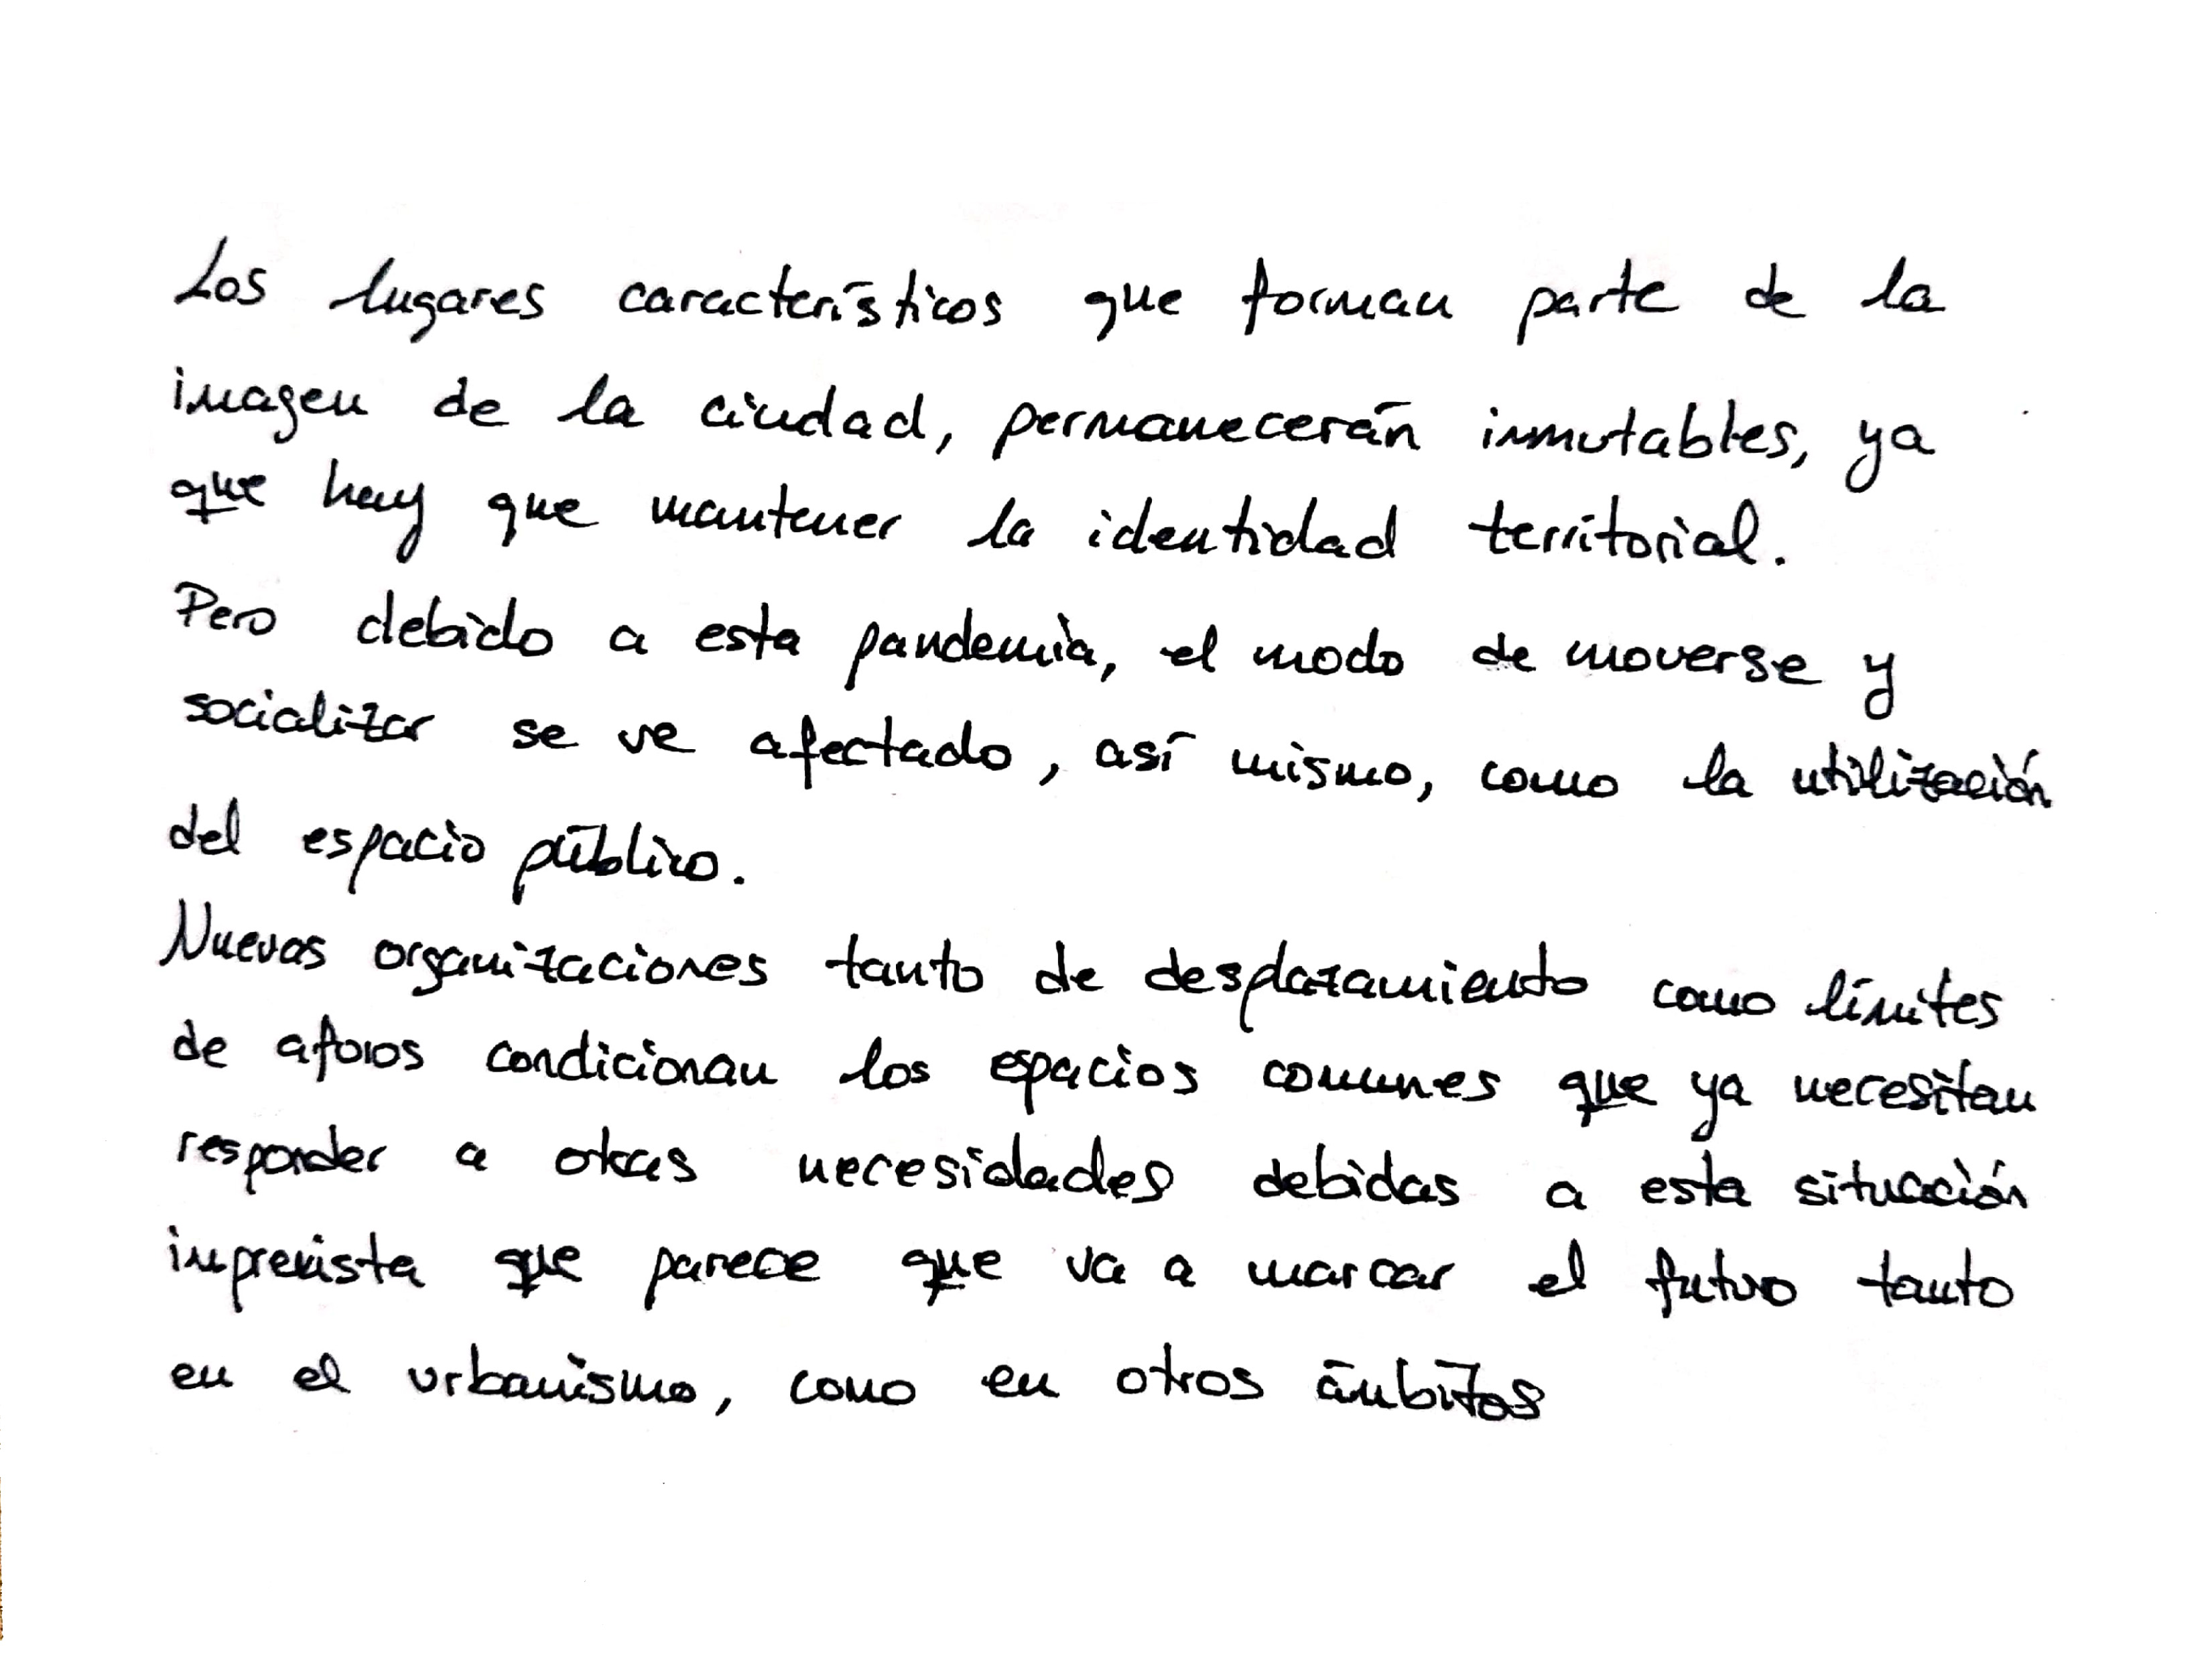 Los lugares característicos que forman parte de la
imagen de la ciudad, permanecerán inmutables, ya
que hay que mantener la identidad territorial.
Pero debido a esta pandemia, el modo de moverse y
socializar se ve afectado, así mismo, como la utilización
del espacio público.
Nuevas organizaciones tanto de desplazamiento como límites
de aforos condicionan los espacios comunes que ya necesitan
responder a otras necesidades debidas a esta situación
imprevista que parece que va a marcar el futuro tanto
en el urbanismo, como en otros ámbitos